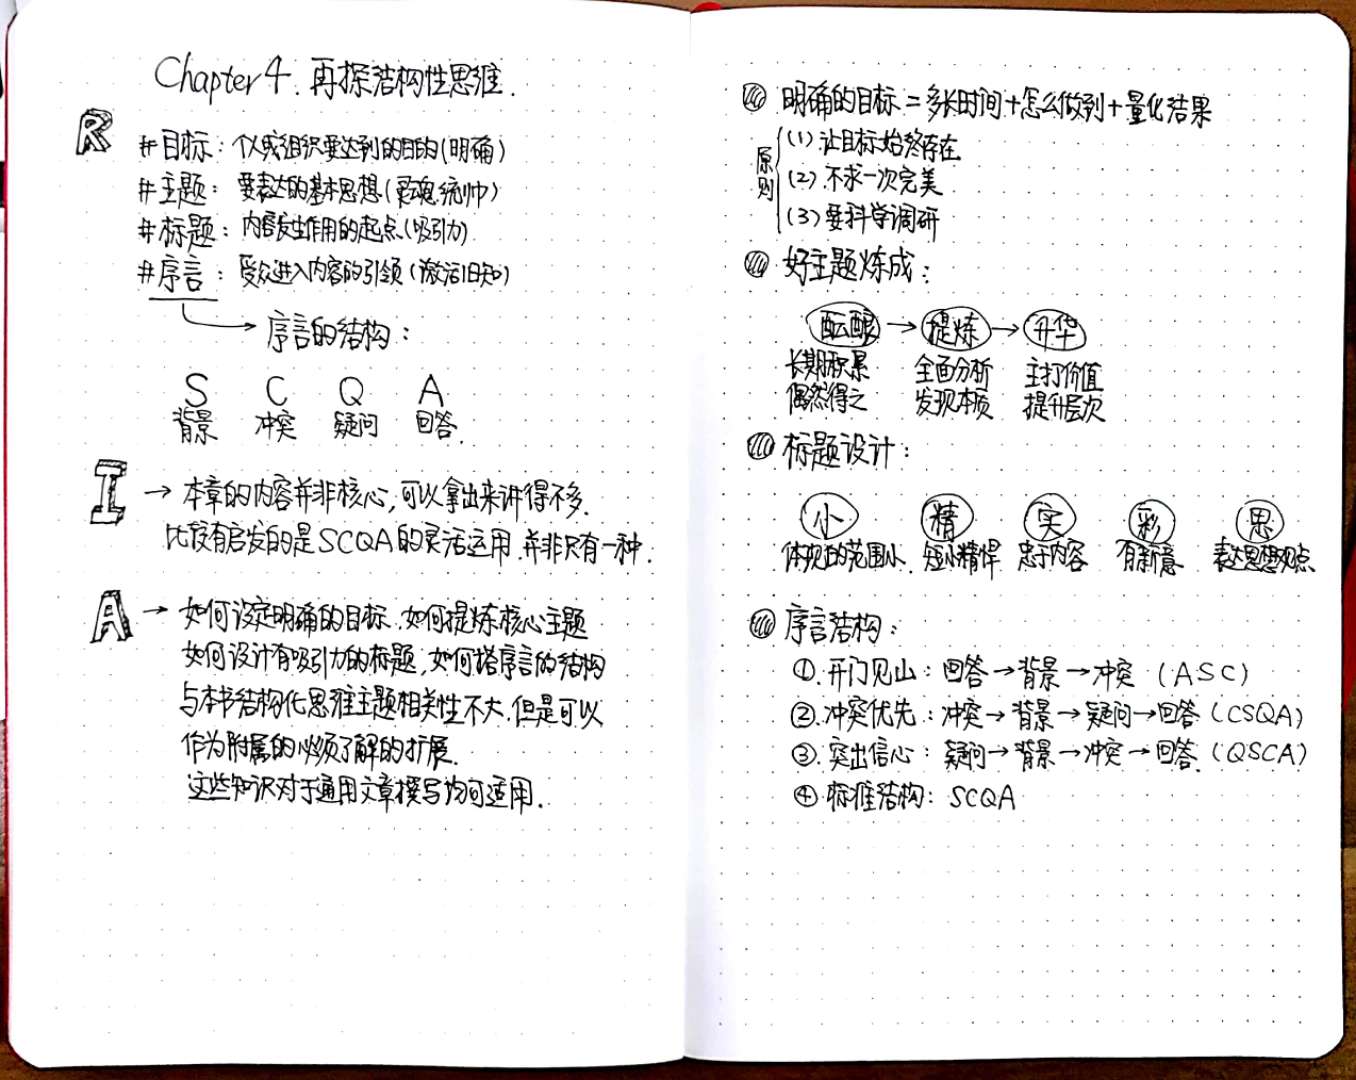 Chapter 4. 再探结构性思维.
R
#目标: 个人或组织要达到的目的(明确)
#主题: 要表达的基本思想(灵魂,统帅)
#标题: 内容发生作用的起点(吸引力)
#序言: 受众进入内容的引领(激活旧知)
序言的结构:
S C Q A
背景 冲突 疑问 回答
I → 本章的内容并非核心,可以拿出来讲得不多.
比较有启发的是SCQA的灵活运用,并非只有一种.
A → 如何设定明确的目标,如何提炼核心主题
如何设计有吸引力的标题,如何搭序言的结构
与本书结构化思维主题相关性不大,但是可以
作为附属的必须了解的扩展.
这些知识对于通用文章撰写均可适用.
明确的目标=多长时间+怎么做到+量化结果
原则
(1) 让目标始终存在
(2) 不求一次完美
(3) 要科学调研
好主题炼成:
酝酿→提炼→升华
长期积累 全面分析 主打价值
偶然得之 发现本质 提升层次
标题设计:
小 精 实 彩 思
体现的范围小 短小精悍 忠于内容 有新意 表达思想观点
序言结构:
①.开门见山: 回答→背景→冲突 (ASC)
②.冲突优先: 冲突→背景→疑问→回答 (CSQA)
③.突出信心: 疑问→背景→冲突→回答 (QSCA)
④.标准结构: SCQA